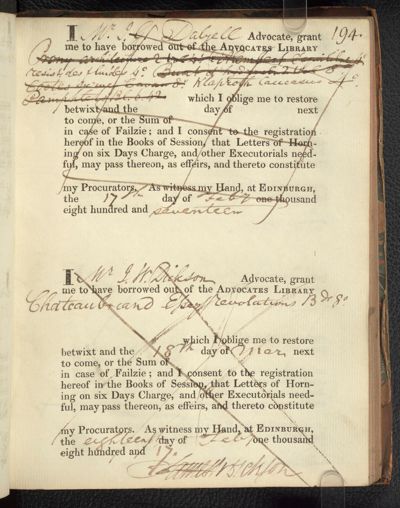 194.
I Mr. J. G. Dalyell Advocate, grant
me to have borrowed out of the ADVOCATES LIBRARY
Klaproth Caucasus 4o.
which I oblige me to restore
betwixt and the day of next
to come, or the Sum of
in case of Failzie; and I consent to the registration
hereof in the Books of Session, that Letters of Horn-
ing on six Days Charge, and other Executorials need-
ful, may pass thereon, as effeirs, and thereto constitute
my Procurators. As witness my Hand, at EDINBURGH,
the 17th day of Feby one thousand
eight hundred and seventeen
I Mr. J. W. Dickson Advocate, grant
me to have borrowed out of the ADVOCATES LIBRARY
Chateaubriand Essay Revolutions
which I oblige me to restore
betwixt and the 18th day of Mar next
to come, or the Sum of
in case of Failzie; and I consent to the registration
hereof in the Books of Session, that Letters of Horn-
ing on six Days Charge, and other Executorials need-
ful, may pass thereon, as effeirs, and thereto constitute
my Procurators. As witness my Hand, at EDINBURGH,
the eighteen day of Feby one thousand
eight hundred and 17.